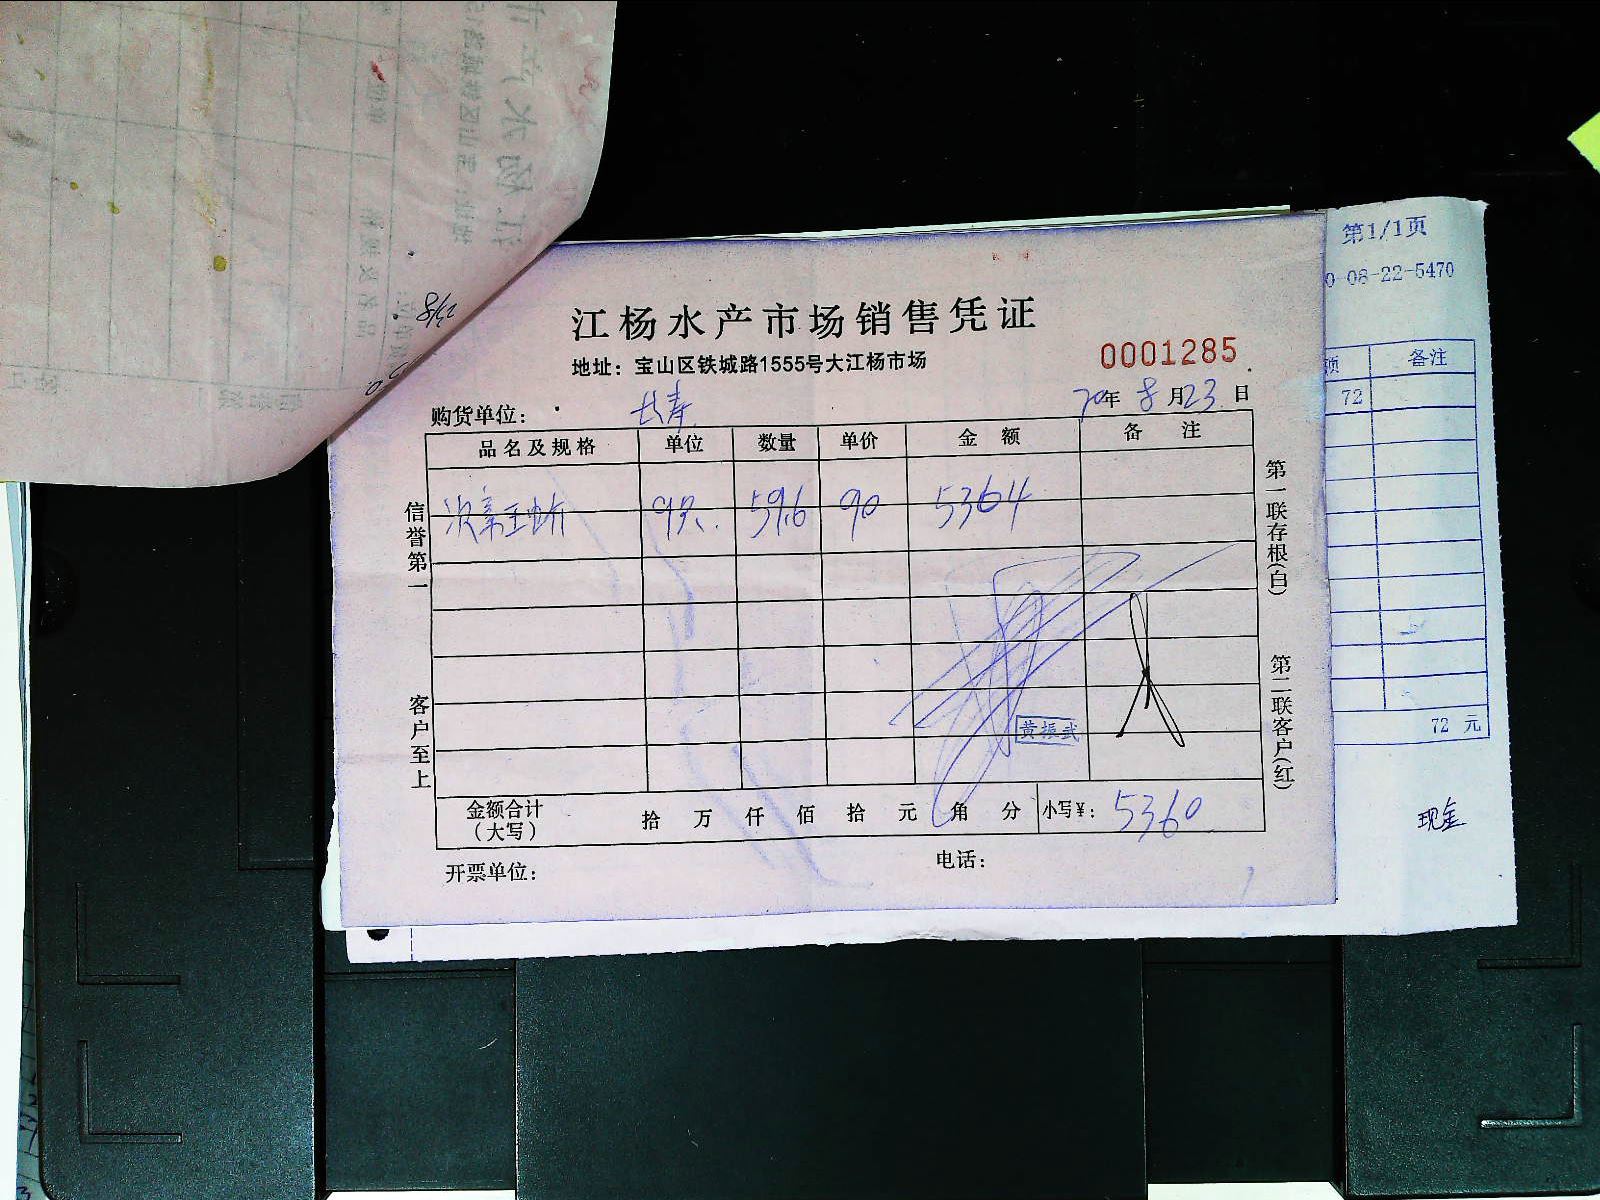 第1/1页
0-08-22-5470
江杨水产市场销售凭证
地址：宝山区铁城路1555号大江杨市场
0001285
购货单位： 长寿
20年 8月23日
品名及规格 单位 数量 单价 金额 备注
59.6 90 5364
信誉第一
客户至上
第一联存根(白)
第二联客户(红)
黄振武
金额合计
（大写）
拾 万 仟 佰 拾 元 角 分 小写¥： 5360
开票单位：
电话：
额 备注
72
72 元
现金